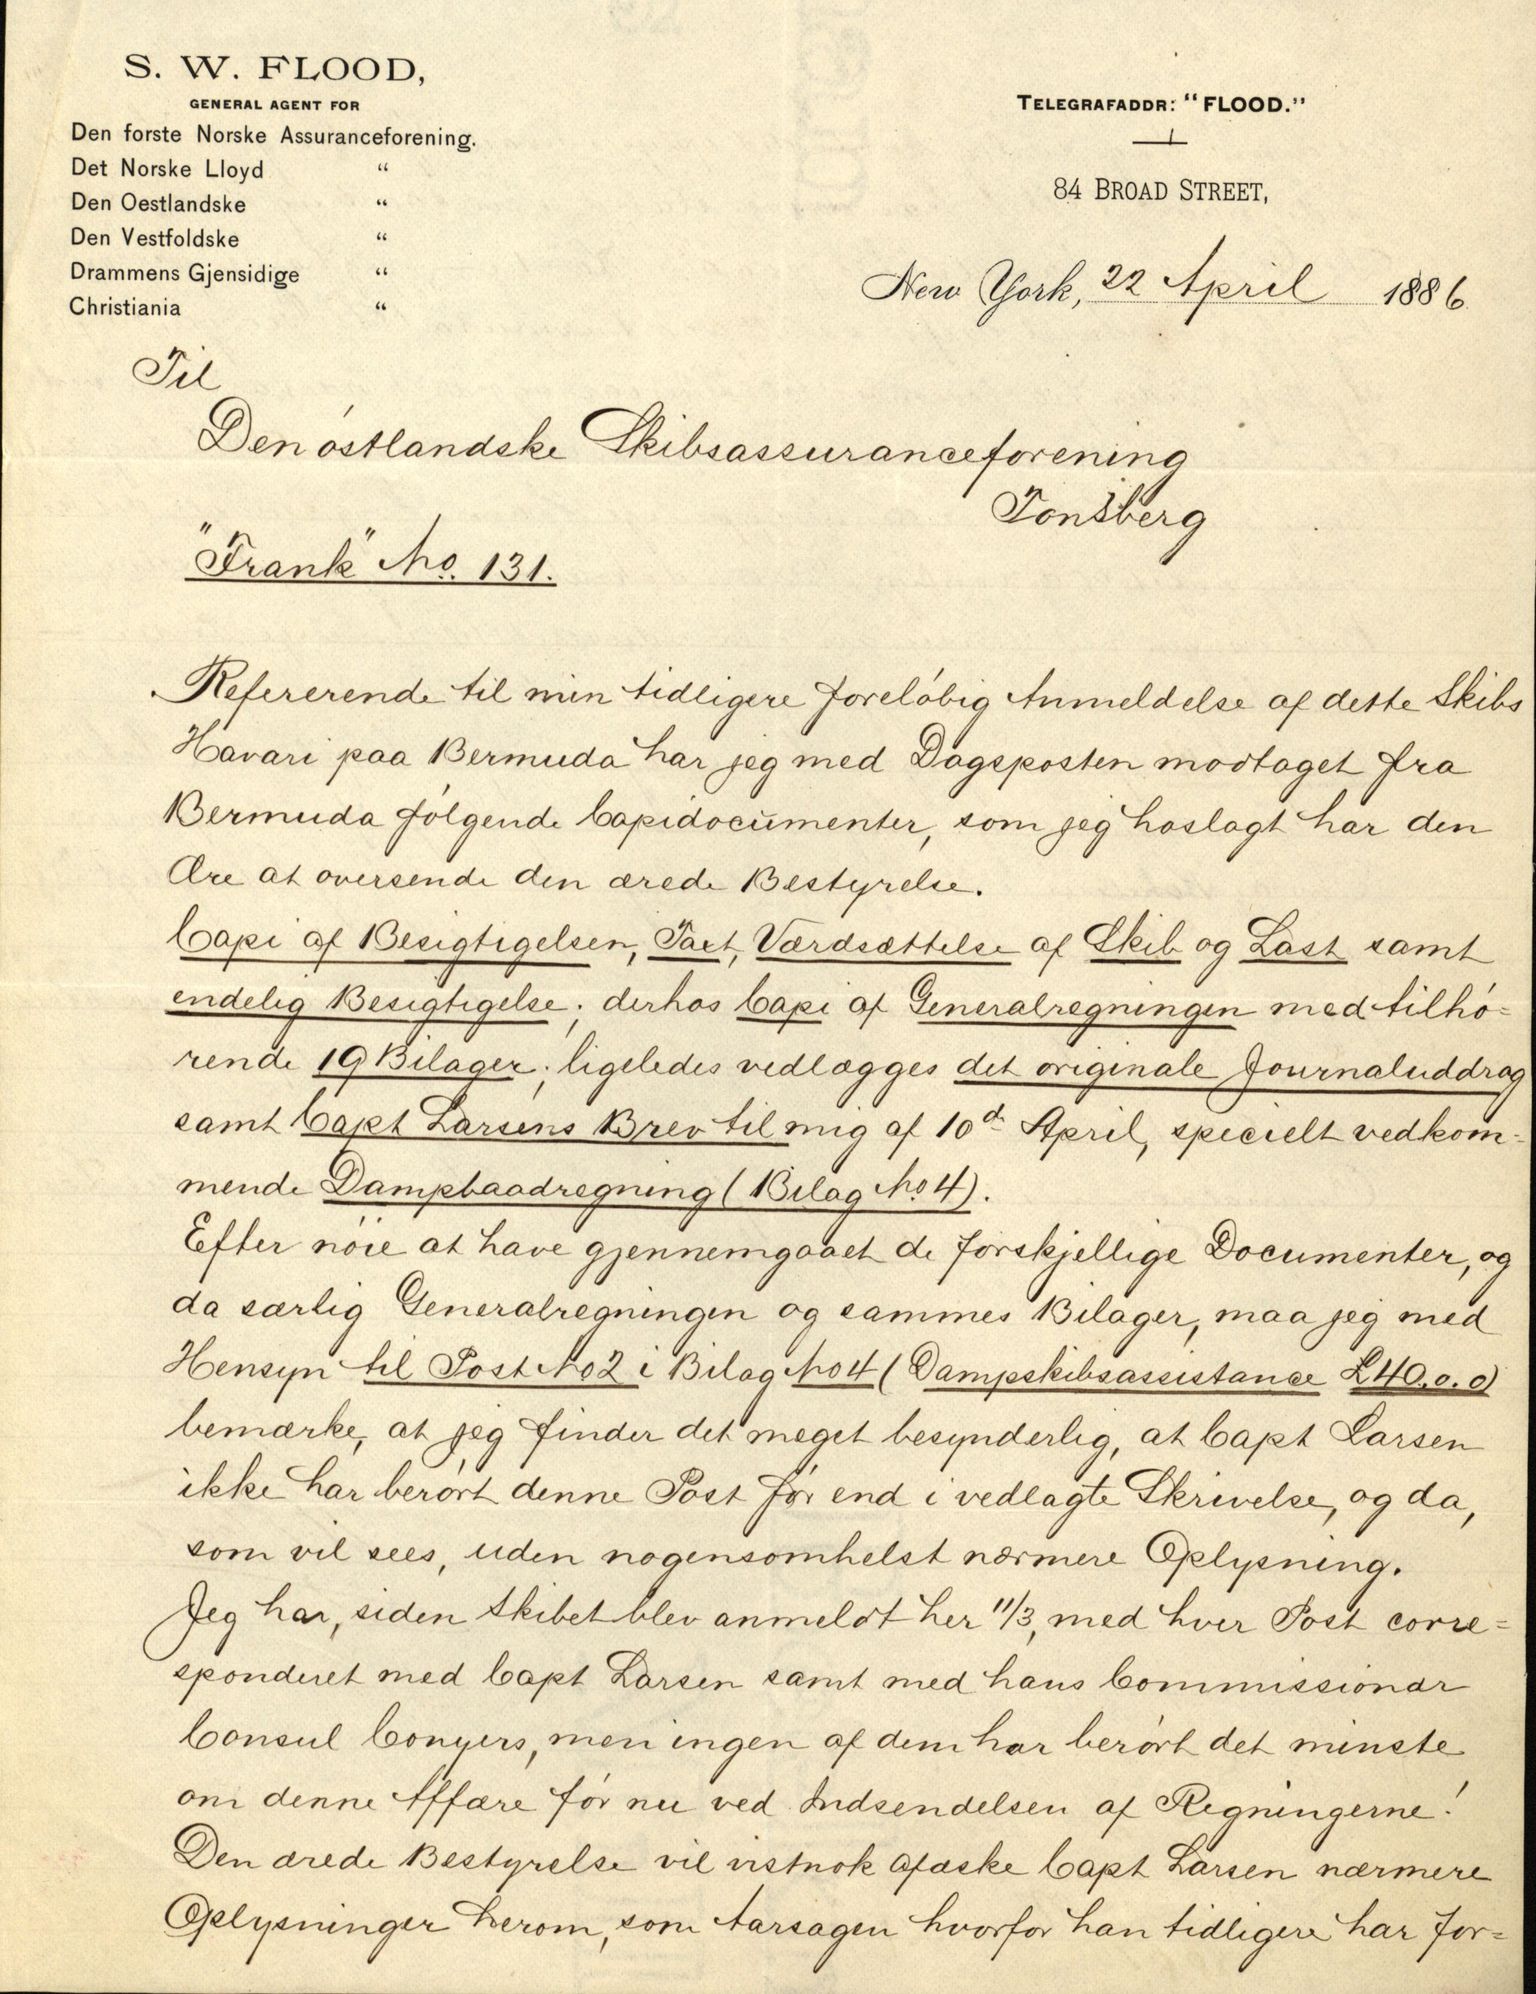 S. W. FLOOD,
GENERAL AGENT FOR
Den forste Norske Assuranceforening.
Det Norske Lloyd "
Den Oestlandske "
Den Vestfoldske "
Drammens Gjensidige "
Christiania "
TELEGRAFADDR: "FLOOD."
84 BROAD STREET,
New York, 22 April 1886
Til
Den östlandske Skibsassuranceforening
Tonsberg
"Frank" No. 131.
Refererende til min tidligere foreløbig Anmeldelse af dette Skibs
Havari paa Bermuda har jeg med Dagsposten modtaget fra
Bermuda følgende Copidocumenter, som jeg hoslagt har den
Ære at oversende den ærede Bestyrelse.
Copi af Besigtigelsen, Taxt, Værdsættelse af Skib og Last samt
endelig Besigtigelse; derhos Copi af Generalregningen med tilhø=
rende 19 Bilager; ligeledes vedlægges det originale Journaluddrag
samt Capt Larsens Brev til mig af 10d April, specielt vedkom=
mende Dampbaadregning (Bilag No 4).
Efter nøie at have gjennemgaaet de forskjellige Documenter, og
da særlig Generalregningen og sammes Bilager, maa jeg med
Hensyn til Post No 2 i Bilag No 4 (Dampskibsassistance £40.0.0)
bemærke, at jeg finder det meget besynderlig, at Capt Larsen
ikke har berørt denne Post før end i vedlagte Skrivelse, og da,
som vil sees, uden nogensomhelst nærmere Oplysning.
Jeg har, siden Skibet blev anmeldt her 11/3, med hver Post corre=
sponderet med Capt Larsen samt med hans Commissionær
Consul Conyers, men ingen af dem har berørt det minste
om denne Affære før nu ved Indsendelsen af Regningerne!
Den ærede Bestyrelse vil vistnok afæske Capt Larsen nærmere
Oplysninger herom, som Aarsagen hvorfor han tidligere har for=